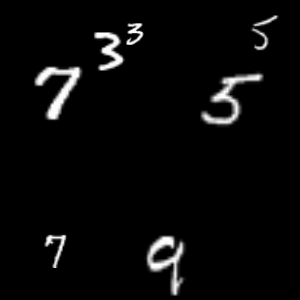 7 3 3 5 5
7 9